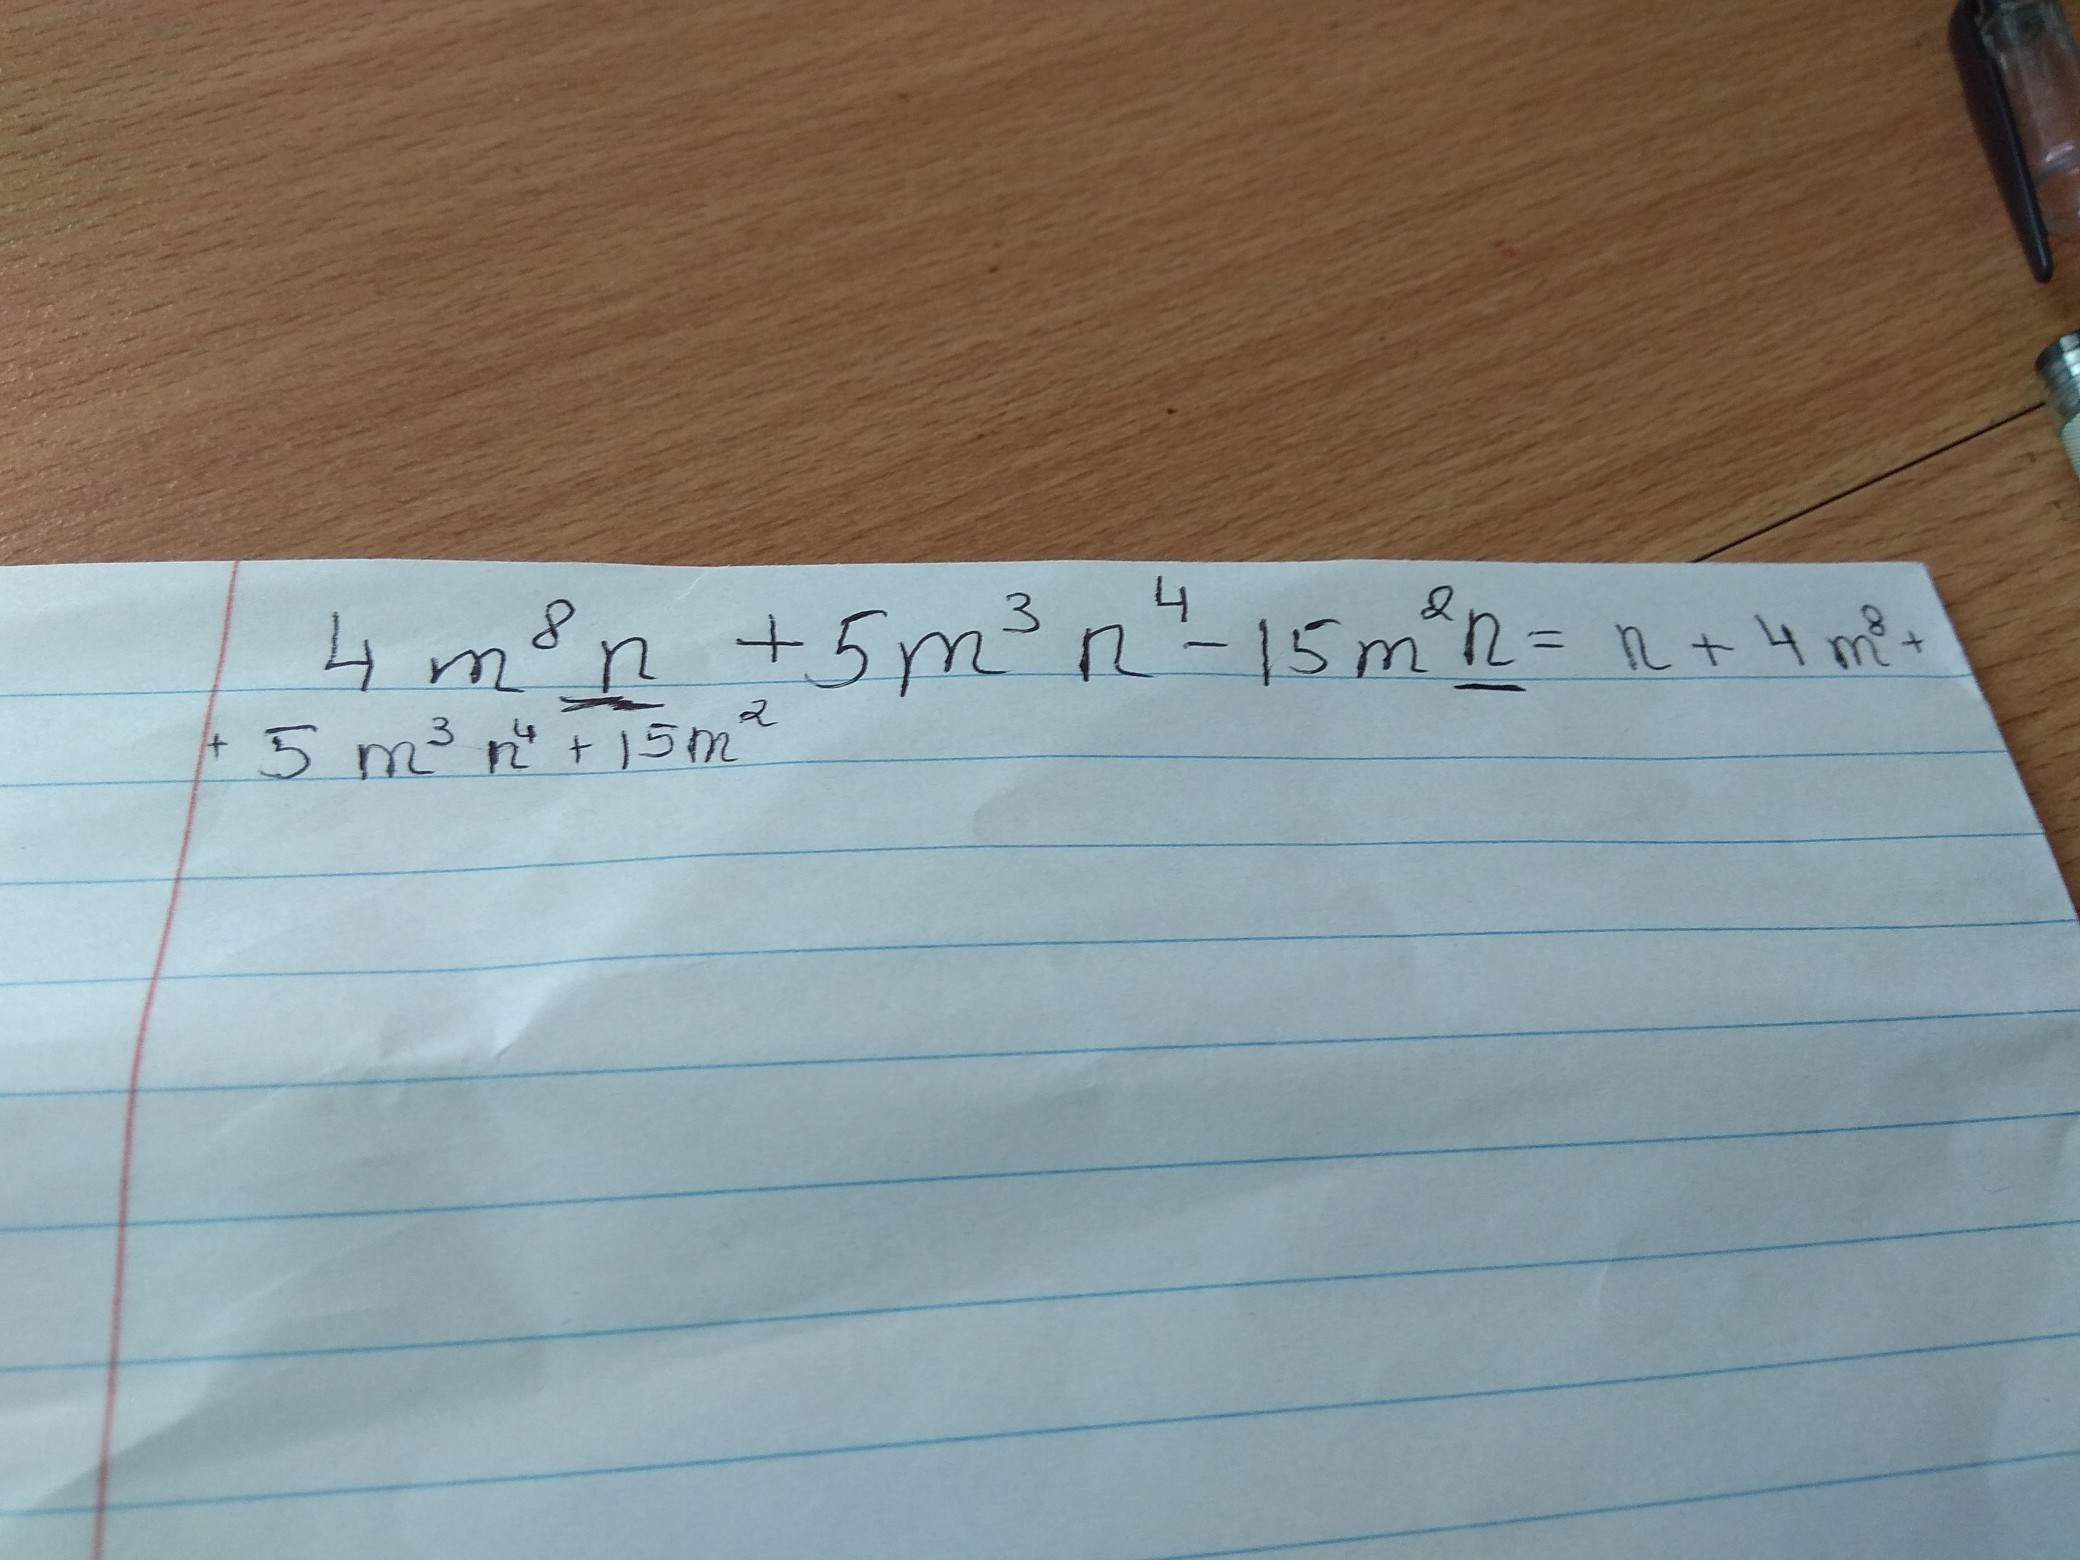 4 m⁸ n + 5m³ n⁴ - 15m² n = n + 4 m⁸ +
+ 5 m³ n⁴ + 15m²